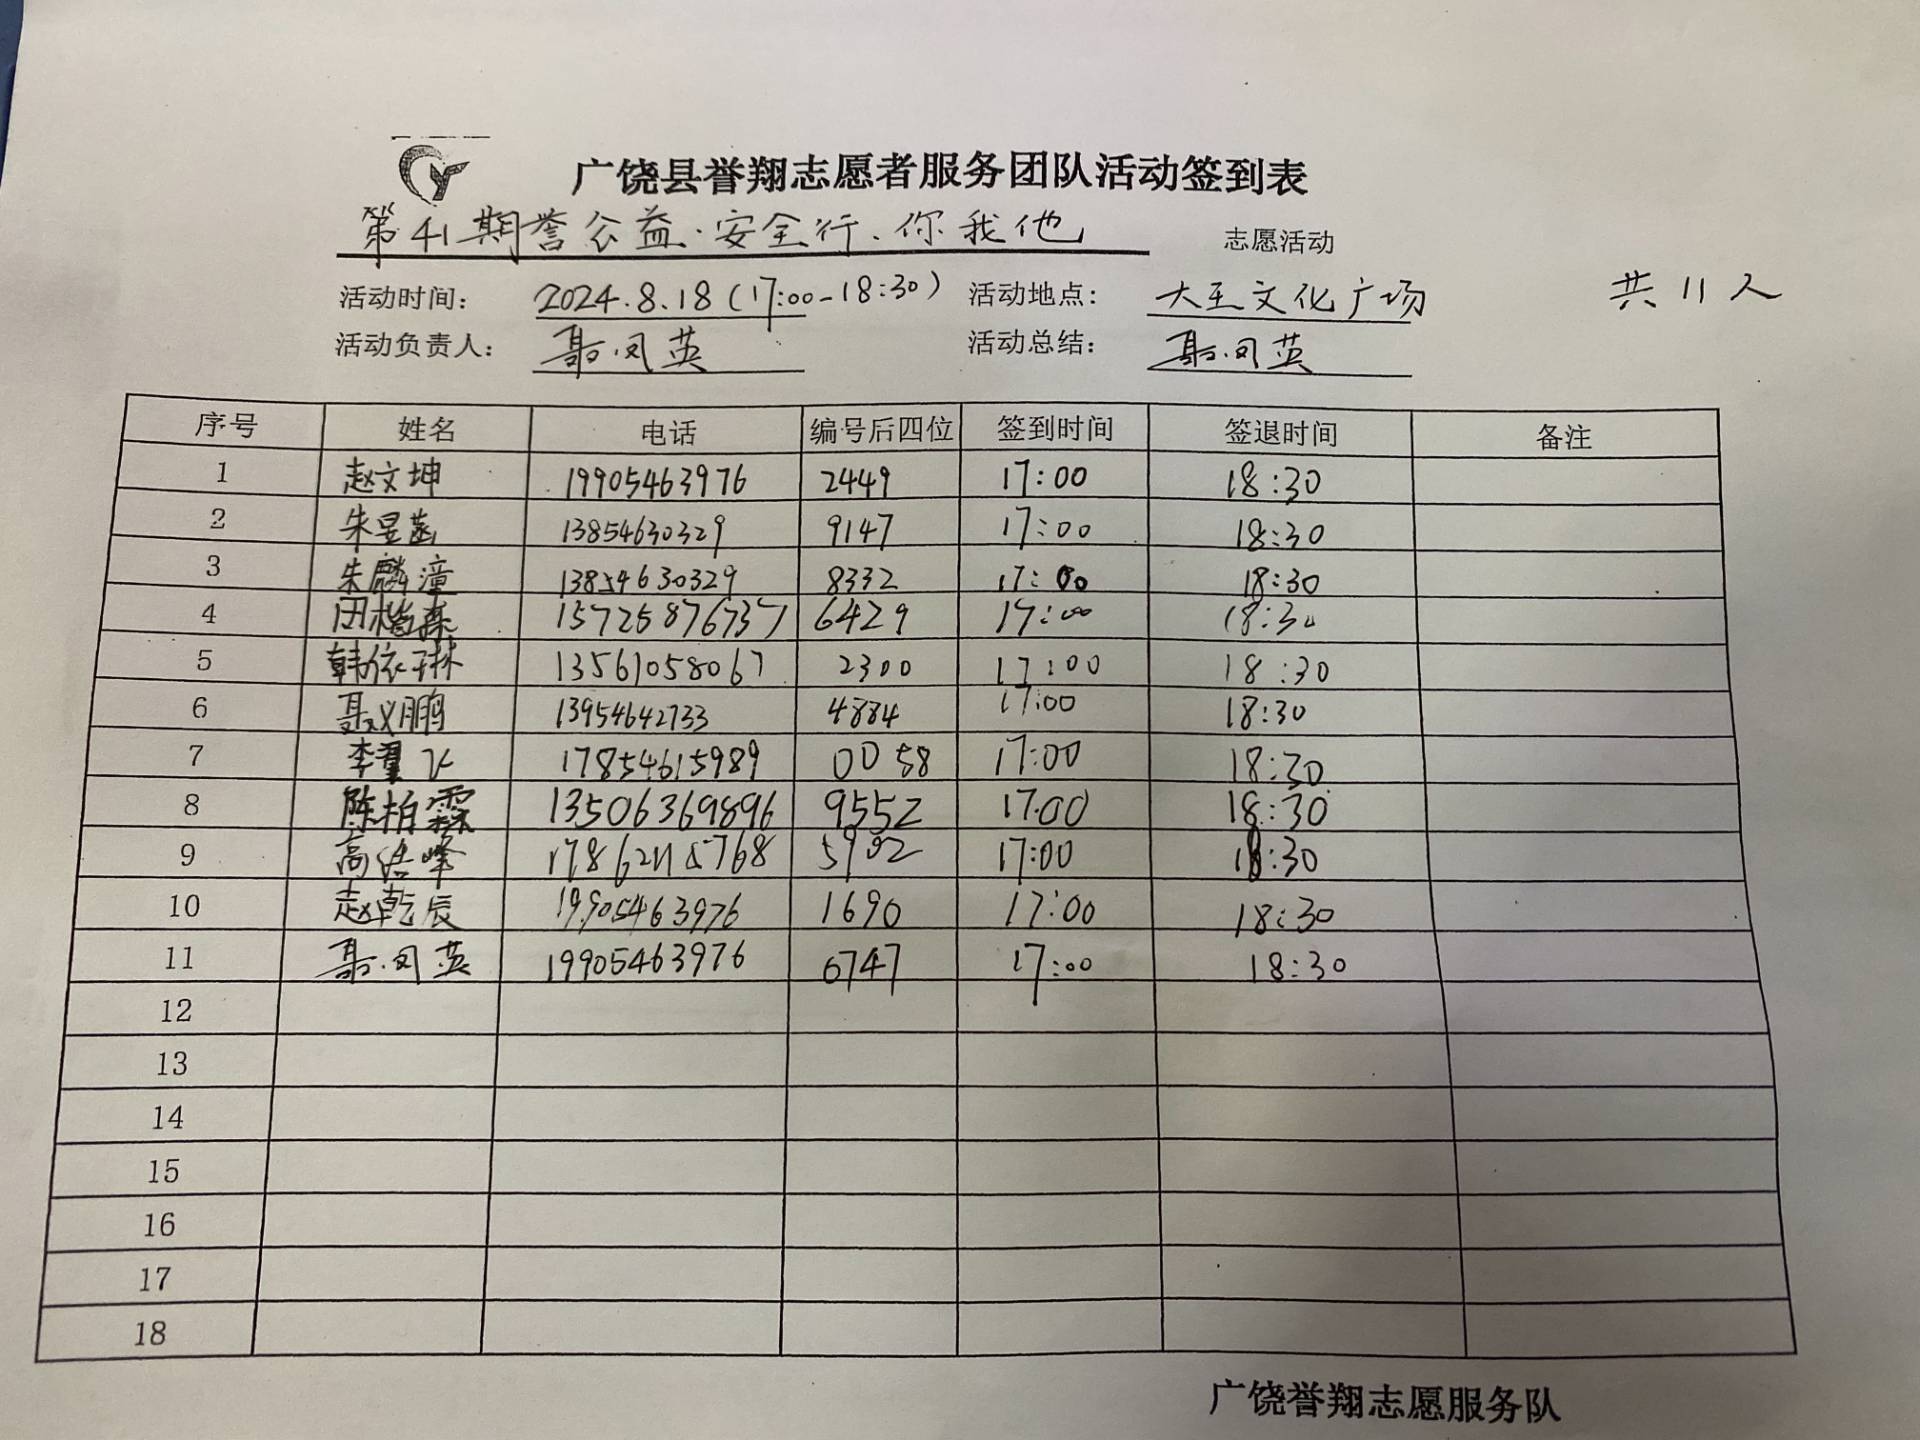 广饶县誉翔志愿者服务团队活动签到表
第41期誉公益·安全行、你我他 志愿活动
活动时间： 2024.8.18(17:00-18:30) 活动地点： 大王文化广场 共11人
活动负责人： 聂凤英 活动总结： 聂凤英
序号 姓名 电话 编号后四位 签到时间 签退时间 备注
1 赵文坤 19905463976 2449 17:00 18:30
2 朱昱菡 13854630329 9147 17:00 18:30
3 朱麟潼 13854630329 8332 17:00 18:30
4 田楷森 15725876737 6429 17:00 18:30
5 韩依琳 13561058067 2300 17:00 18:30
6 聂义鹏 13954642733 4884 17:00 18:30
7 李 飞 17854615989 0058 17:00 18:30
8 陈柏霖 13506369896 9552 17:00 18:30
9 高 峰 5902 17:00 18:30
10 赵乾辰 19905463976 1690 17:00 18:30
11 聂凤英 19905463976 6747 17:00 18:30
12
13
14
15
16
17
18
广饶誉翔志愿服务队